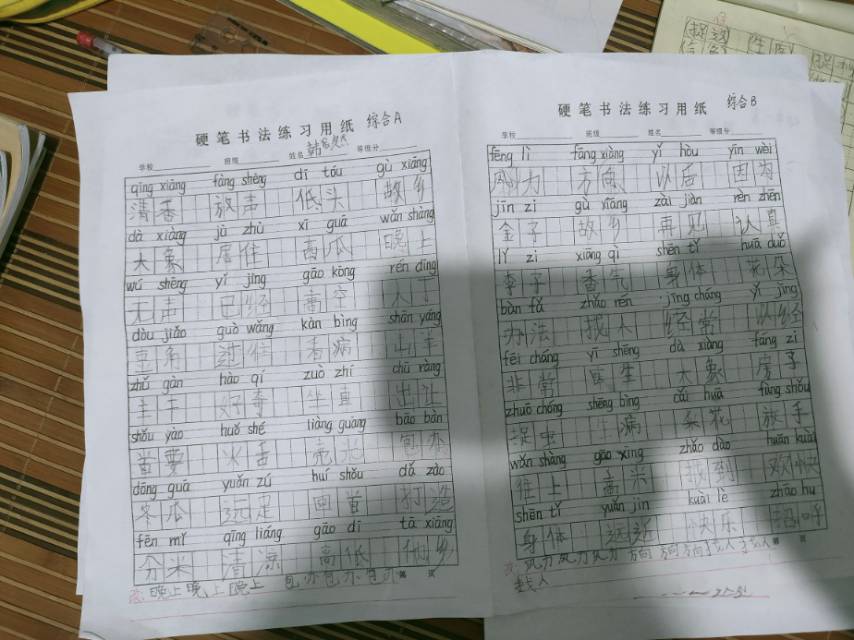 硬笔书法练习用纸 综合A
学校 班级 姓名 韩 等级分
qīng xiāng fàng shēng dī tóu gù xiāng
清香 放声 低头 故乡
dà xiàng jū zhù xī guā wǎn shàng
大象 居住 瓜 晚上
wú shēng yǐ jīng gāo kōng rén dīng
无声 已经 高空 人丁
dòu jiǎo guò wǎng kàn bìng shān yáng
豆角 过往 看病 山羊
zhǔ gàn hào qí zuò zhí chū ràng
主干 好奇 坐直 出让
shǒu yào huǒ shé liàng guāng bāo bàn
首要 火舌 亮光 包办
dōng guā yuǎn zú huí shǒu dǎ zào
冬瓜 远足 回首 打造
fēn mǐ qīng liáng gāo dī tā xiāng
分米 清凉 高低 他乡
晚上 晚上 晚上 包办 包办 包办
硬笔书法练习用纸 综合B
学校 班级 姓名 等级分
fēng lì fāng xiàng yǐ hòu yīn wèi
风力 方向 以后 因为
jīn zi gù xiāng zài jiàn rèn zhēn
金子 故乡 再见 认真
lǐ zi xiāng qì shēn tǐ huā duǒ
李子 香气 身体 花朵
bàn fǎ zhǎo rén jīng cháng yǐ jīng
办法 找人 经常 以经
fēi cháng yī shēng dà xiàng fáng zi
非常 医生 大象 房子
zhuō chóng shēng bìng lí huā fàng shǒu
捉虫 生病 梨花 放手
wǎn shàng gāo xìng zhǎo dào huān kuài
上 高 找到 欢快
shēn tǐ yuǎn jìn kuài lè zhāo hu
身体 远近 快乐 招呼
风力 风力 风力 方向 方向 方向 找人 找人
找人